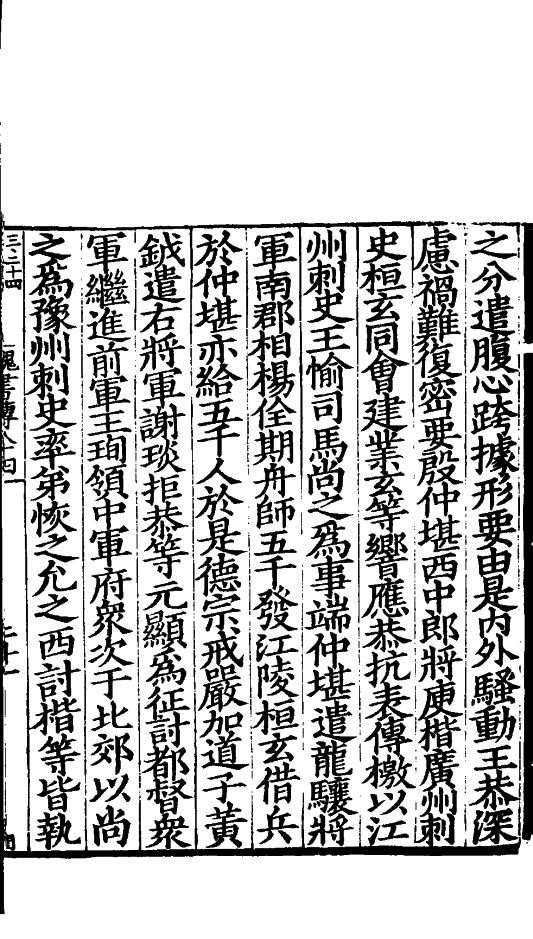 之分遣腹心跨據形要由是内外騷動王恭深
慮禍難復密要殷仲堪西中郎將庾楷廣州刺
史桓玄同會建業玄等響應恭抗表傳檄以江
州刺史王愉司馬尚之爲事端仲堪遣龍驤將
軍南郡相楊佺期舟師五千發江陵桓玄借兵
於仲堪亦給五千人於是德宗戒嚴加道子黃
鉞遣右將軍謝琰拒恭等元顯爲征討都督衆
軍繼進前軍王珣領中軍府衆次于北郊以尚
之爲豫州刺史率弟恢之允之西討楷等皆執
三二十四 魏書傳八十四